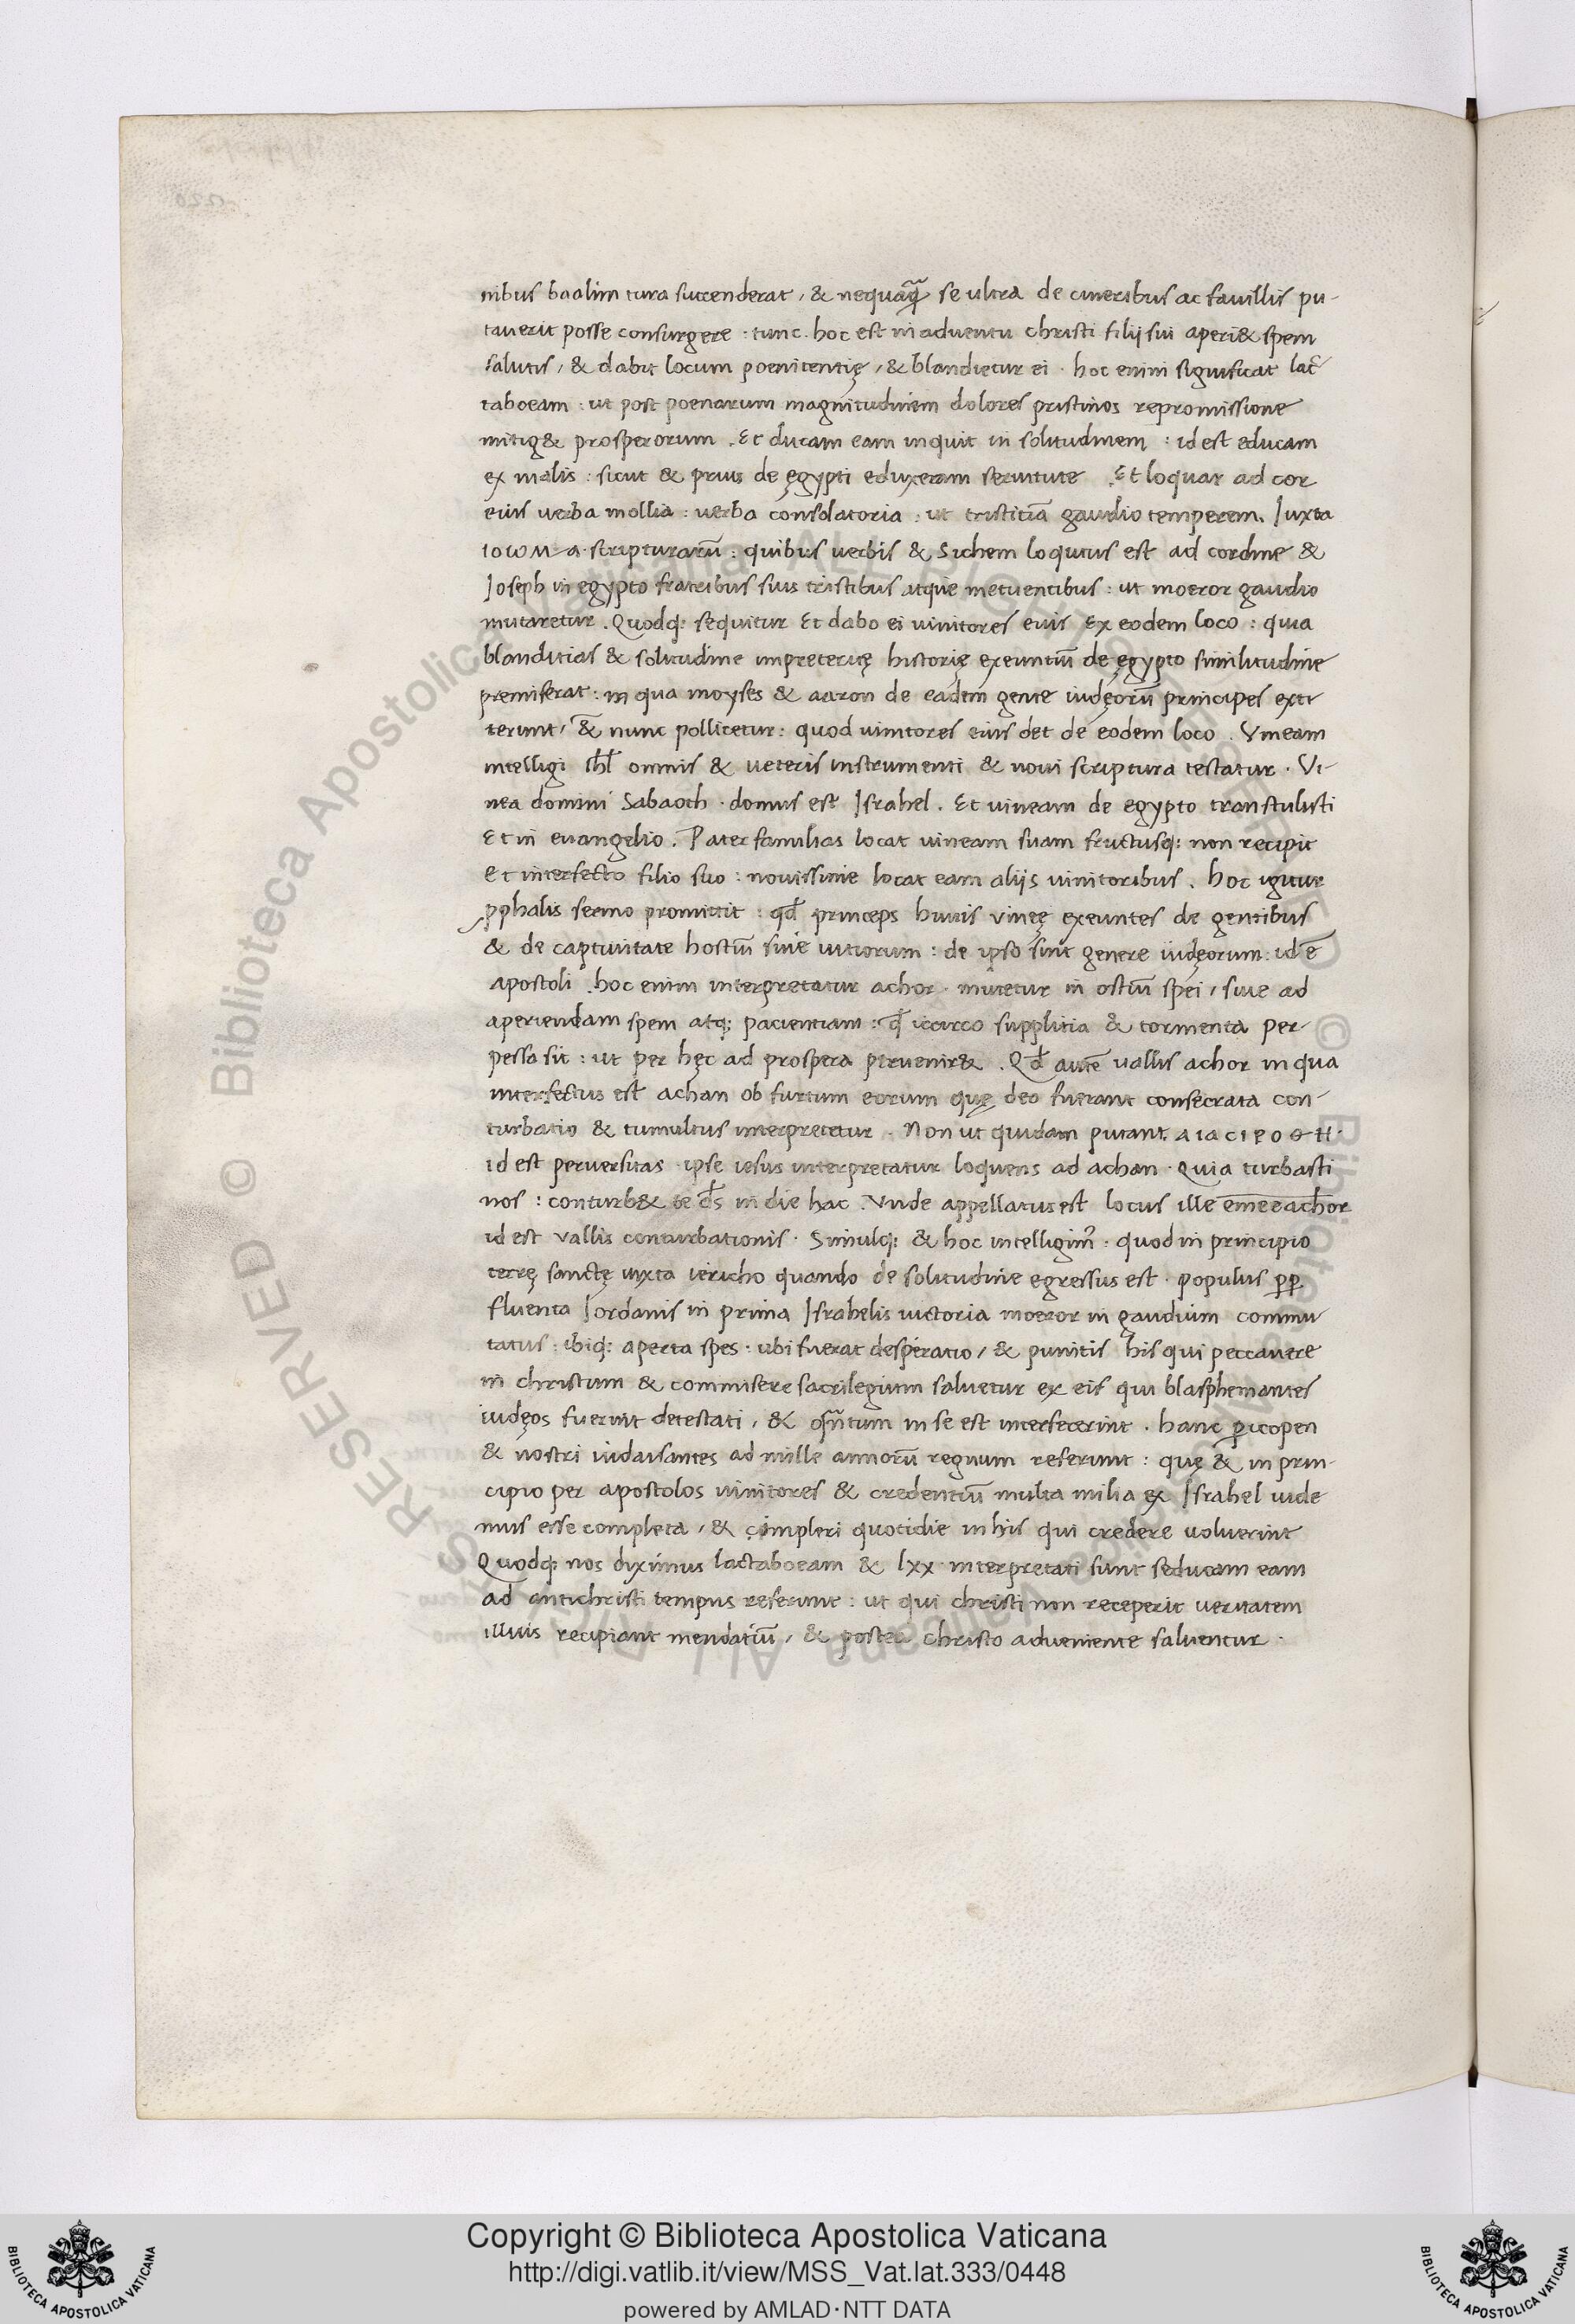 nibus baalim tura succenderat, & nequaq̄ se ultra de cineribus ac fauillis pu-
tauerit posse consurgere : tunc. hoc est in aduentu christi filij sui aperi& spem
salutis, & dabit locum poenitentię, & blandietur ei. hoc enim significat lac
taboeam : ut post poenarum magnitudinem dolores pristinos repromissione
mitig& prosperorum. Et ducam eam inquit in solitudinem : id est educam
ex malis : sicut & prius de ęgypti eduxeram seruitute. Et loquar ad cor
eius uerba mollia : uerba consolatoria : ut tristitiā gaudio temperem. Iuxta
ιοιωΜ a scripturarū : quibus uerbis & Sichem loqutus est ad cordine &
Ioseph in egypto fratribus suis tristibus atque metuentibus : ut moeror gaudio
mutaretur. Quodq; sequitur Et dabo ei uinitores euis Ex eodem loco : quia
blanditias & solitudine impreteritę historię exeuntiū de ęgypto similitudine
premiserat : in qua moyses & aaron de eadem gente iudęorū principes exti
terunt, & nunc pollicetur : quod uinitores eius det de eodem loco. Vineam
intelligi Ishl̄ omnis & ueteris instrumenti & noui scriptura testatur. Vi-
nea domini Sabaoth. domus est Israhel. Et uineam de egypto transtulisti
Et in euangelio. Pater familias locat uineam suam fructusq; non recipit
Et interfecto filio suo : nouissime locat eam aliis uinitoribus. hoc igitur
pphalis sermo promittit : qd̄ princeps huius vineę exeuntes de gentibus
& de captiuitate hostiū siue uitiorum : de ipso sint genere iudęorum : id ē
apostoli. hoc enim interpretatur achor. mutetur in ostiū spei, siue ad
aperiendam spem atq; pacientiam : q̄d icirco supplitia & tormenta per-
pessa sit : ut per hęc ad prospera perueniret&. Qd̄ autē uallis achor in qua
interfectus est achan ob furtum eorum quę deo fuerant consecrata con-
turbatio & tumultus interpretetur. Non ut quidam putant. Α Ι Α C Τ Ρ Ο Φ Η.
id est peruersitas ipse iesus interpretatur loquens ad achan. Quia turbasti
nos : conturb& te d̄s in die hac. Vnde appellatus est locus ille emeeachor
id est vallis conturbationis. Simulq; & hoc intelligim᾽ : quod in principio
terrę sanctę iuxta iericho quando de solitudine egressus est. populus pp.
fluenta Iordanis in prima Israhelis uictoria moeror in gaudium commu
tatus : ibiq; aperta spes : ubi fuerat desperatio, & punitis his qui peccauere
in christum & commisere sacrilegium saluetur ex eis qui blasphemantes
iudęos fuerint detestati, & qn̄tum in se est interfecerint. hanc ꝑicopen
& nostri iudaisantes ad mille annorū regnum referunt : quę & in prin-
cipio per apostolos uinitores & credentiū multa milia ex Israhel uide
mus esse completa, & cimpleri quotidie in his qui credere uoluerint
Quodq; nos diximus lactaboeam & lxx interpretati sunt seducam eam
ad antichristi tempus referunt : ut qui christi non receperit ueritatem
illius recipiant mendatiū, & postea christo adueniente saluentur.
Copyright © Biblioteca Apostolica Vaticana
http://digi.vatlib.it/view/MSS_Vat.lat.333/0448
powered by AMLAD·NTT DATA